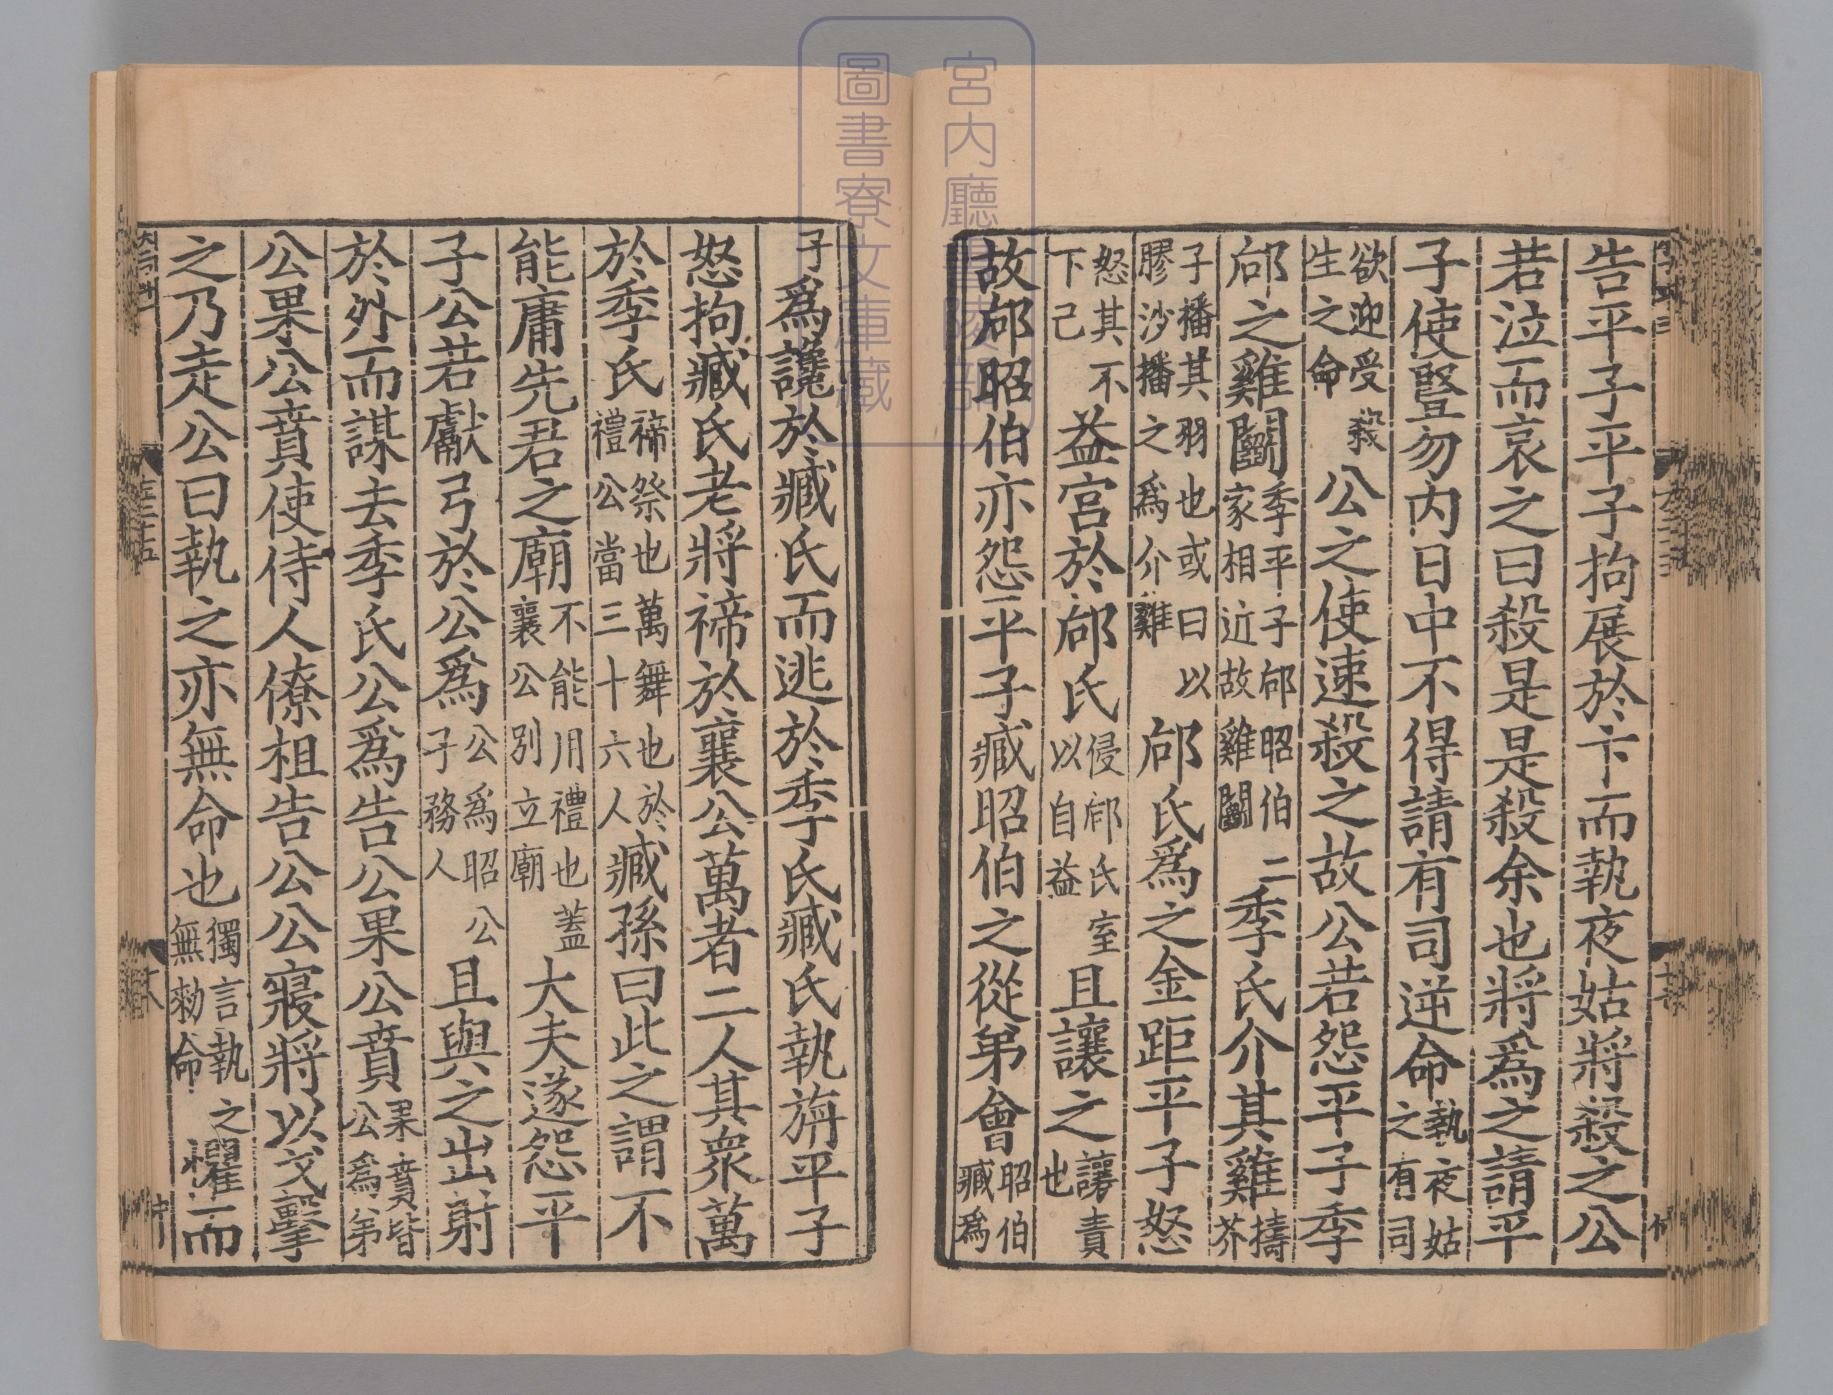 告平子平子拘展於卞而執夜姑將殺之公
若泣而哀之曰殺是是殺余也將爲之請平
子使豎勿内日中不得請有司逆命執夜姑之有司
欲迎受殺生之命公之使速殺之故公若怨平子季
郈之雞鬬季平子郈昭伯二家相近故雞鬬季氏介其雞擣芥
子播其羽也或曰以膠沙播之爲介雞郈氏爲之金距平子怒
怒其不下己益宫於郈氏侵郈氏室以自益且讓之讓責也
故郈昭伯亦怨平子臧昭伯之從弟會昭伯臧爲
子爲讒於臧氏而逃於季氏臧氏執旃平子
怒拘臧氏老將禘於襄公萬者二人其衆萬
於季氏禘祭也萬舞也於禮公當三十六人臧孫曰此之謂不
能庸先君之廟不能用禮也蓋襄公別立廟大夫遂怨平
子公若獻弓於公爲公爲昭公子務人且與之出射
於外而謀去季氏公爲告公果公賁果賁皆公爲弟
公果公賁使侍人僚柤告公公寢將以戈擊
之乃走公曰執之亦無命也獨言執之無勑命懼而
宮内廳書陵部
圖書寮文庫藏